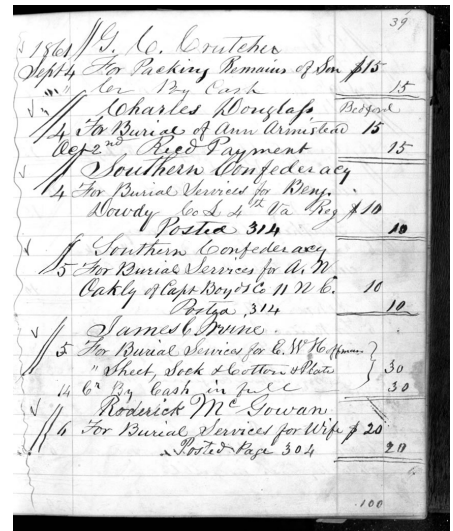 39
1861 G. C. Crutcher
Sept 4 For Packing Remains of Son $15
" " Cr By Cash 15
Charles Douglass Bedford
4 For Burial of Ann Armistead 15
Oct 2nd Recd Payment 15
Southern Confederacy
4 For Burial Services for Benj.
Dowdy Co L 4th Va Reg $10
Posted 314 10
Southern Confederacy
5 For Burial Services for A. N
Oakly of Capt Boyd's Co 11 N C. 10
Posted 314 10
James C Irvine
5 For Burial Services for E. W Hoffman
" Sheet, Sock & Cotton & Plate 30
14 Cr By Cash in full 30
Roderick Mc Gowan
6 For Burial Services for Wife $20
Posted Page 304 20
100